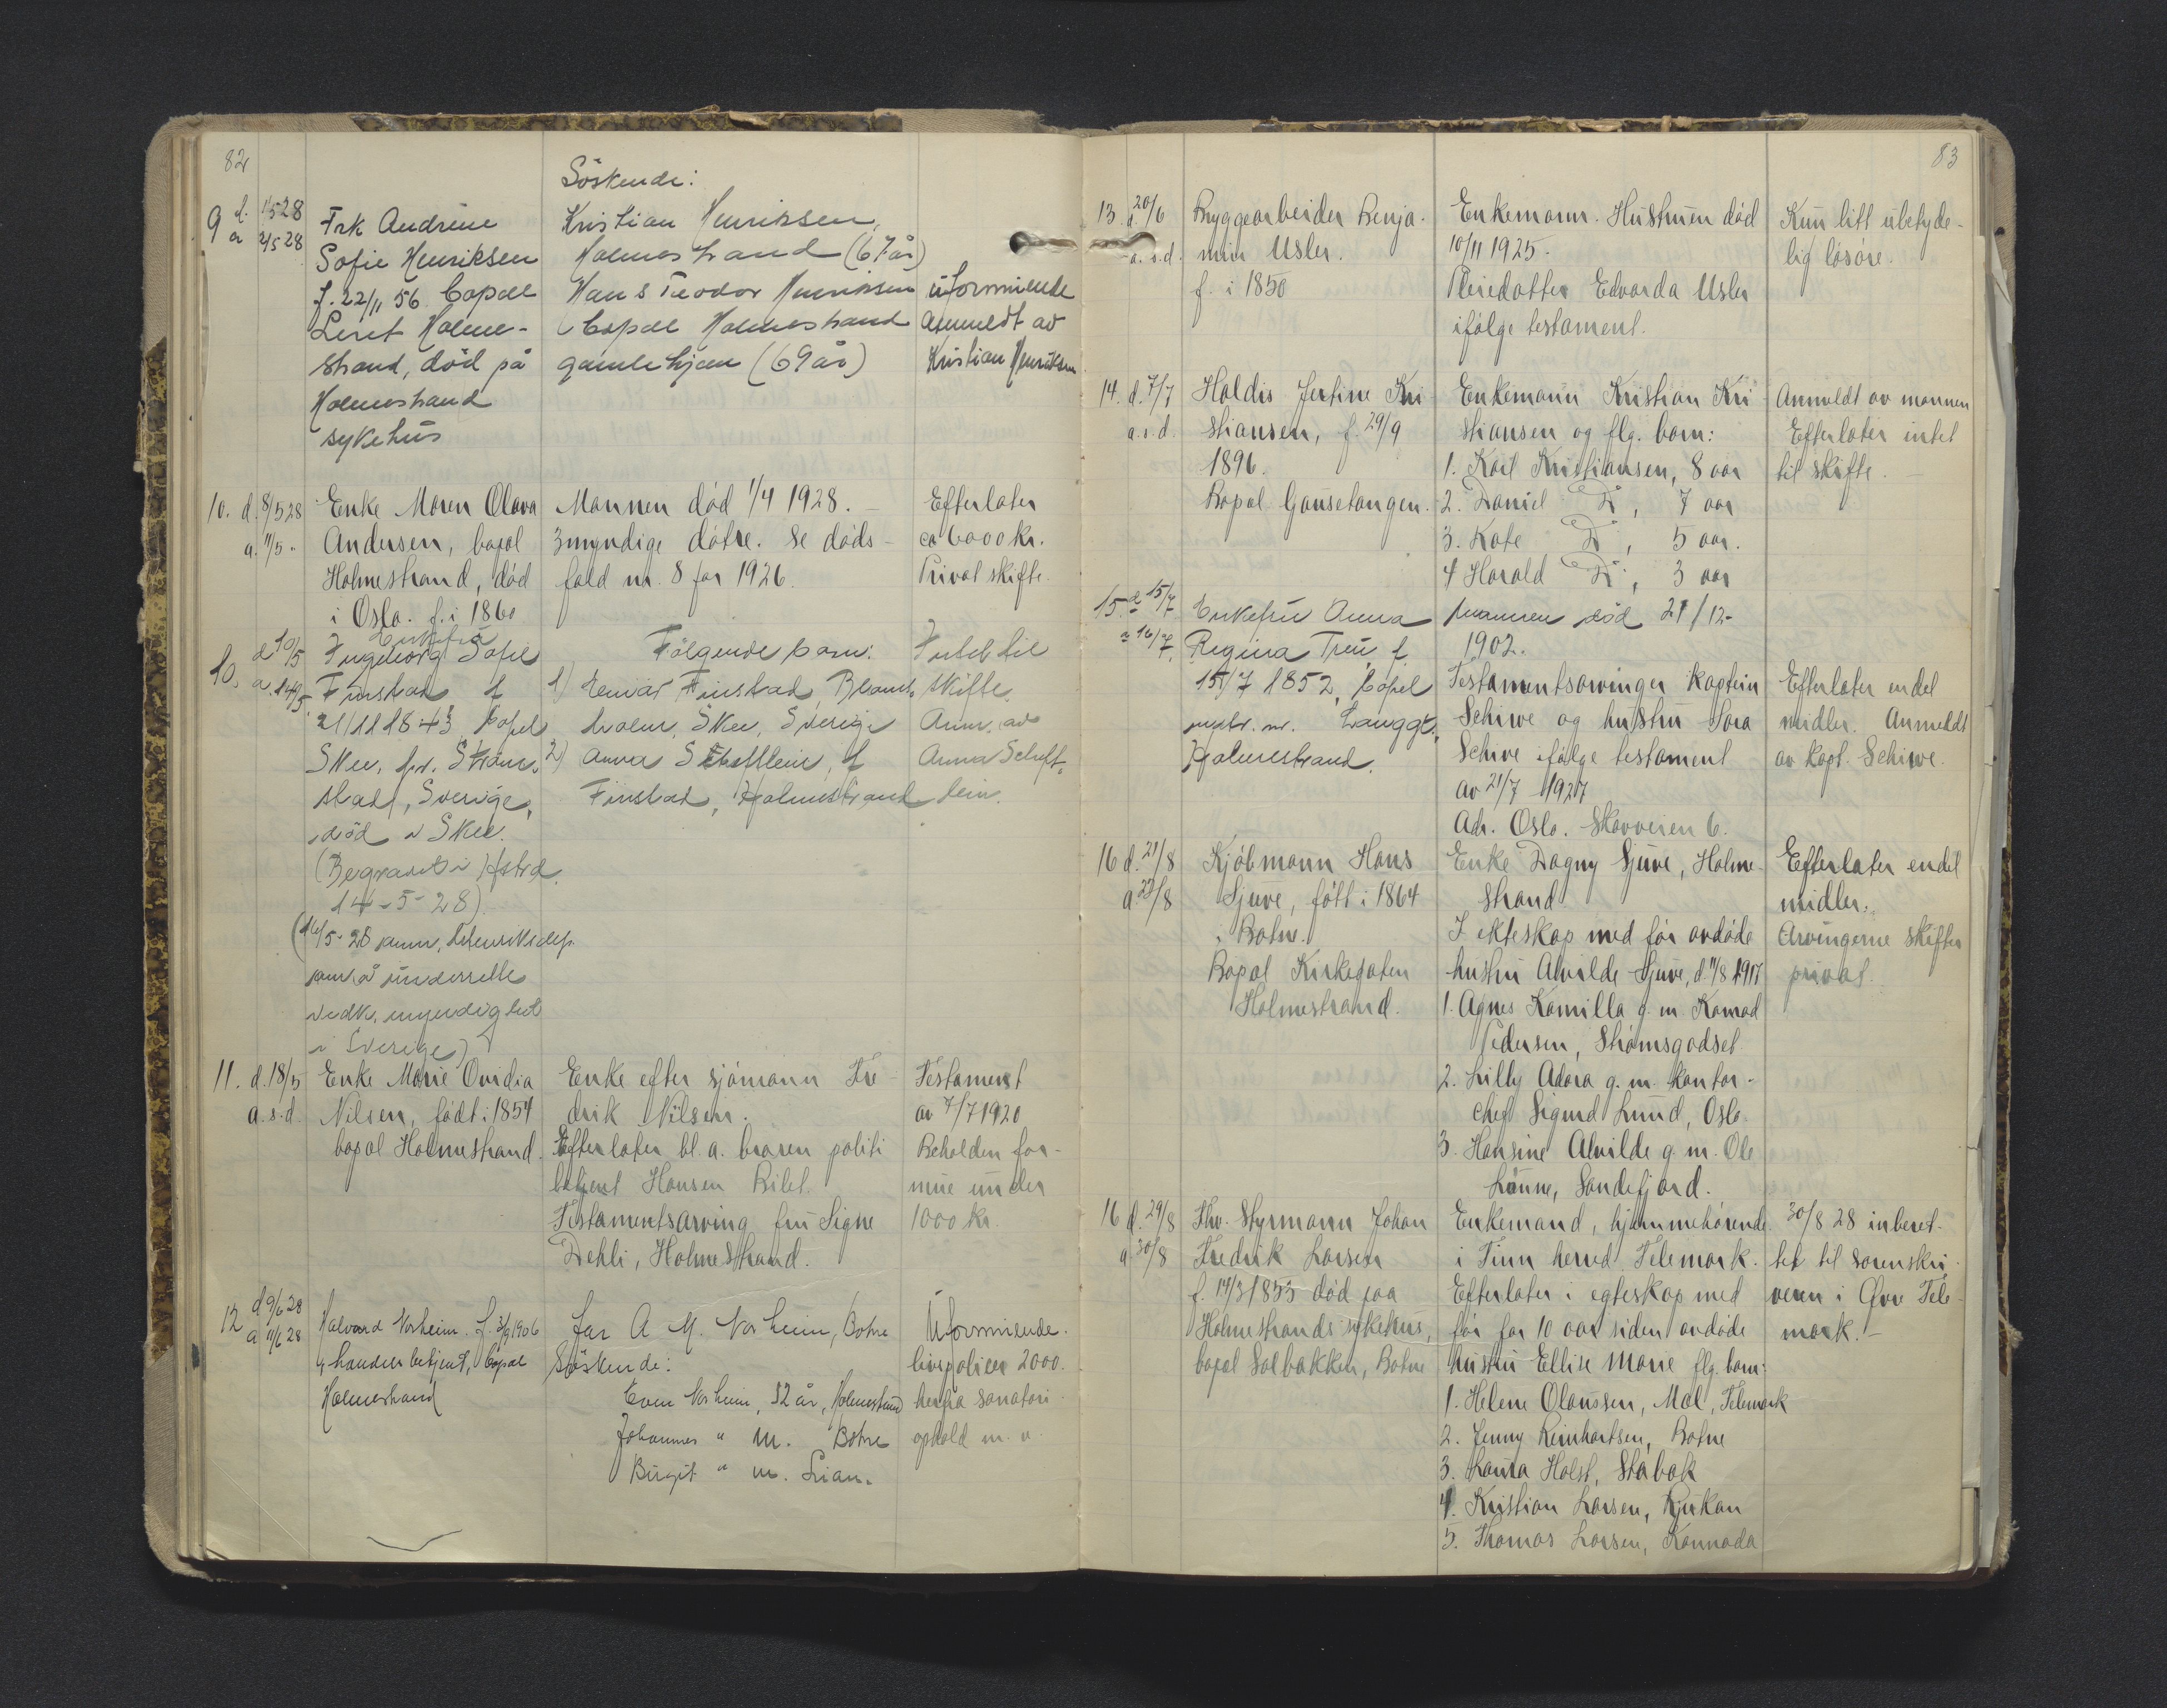 82
9 d. 1/5 28
a 2/5 28
Frk Andrine
Sofie Henriksen
f. 22/11 56 bopæl
Leret Holme-
strand, död på
Holmestrand
sykehus
Söskende:
Kristian Henriksen,
Holmestrand (67 år)
Hans Teodor Henriksen
bopæl Holmestrand
gamlehjem (69 år)
uformuende
Anmeldt av
Kristian Henriksen
10. d. 8/5 28
a. 11/5 "
Enke Maren Olava
Andersen, bopal
Holmestrand, död
i Oslo. f. i 1860
Mannen död 1/4 1928.
3 myndige døtre. Se døds-
fald nr. 8 for 1926.
Efterlater
ca 6000 kr.
Privat skifte.
10. d 10/5
a. 14/5
Enkefru
Ingeborg Sofie
Finstad f
21/11 1843, bopel
Skee, pr. Ström-
stad, Sverige,
död i Skee.
(Begravet i Hstrd.
14-5-28)
(16/5-28 anm.
underrette
vedk. myndighet
i Sverige)
Følgende barn:
1) Einar Finstad,
Skee, Sverige
2) Anna Scheftlein, f
Finstad, Holmestrand
Intet til
skifte.
Anm. av
Anna Scheft-
lein.
11. d. 18/5
a. s. d.
Enke Marie Ovidia
Nilsen, født i 1854
bopal Holmestrand.
Enke efter sjömann Fre-
drik Nilsen.
Efterlater bl. a. broren politi
betjent Hansen Bilet.
Testamentsarving fru Signe
Dehli, Holmestrand.
Testament
av 7/7 1920
Beholden for-
mue under
1000 kr.
12 d 9/6 28
a 11/6 28
Halvard Norheim. f. 3/9 1906
handelsbetjent, bopæl
Holmestrand
far A. M. Norheim, Botne
Søskende:
Even Norheim, 32 år, Holmestrand
Johannes " m. Botne
Birgit " m. Lian.
Uformuende.
livspolicer 2000.
herfra sanatori-
ophold m. v.
83
13. d. 20/6
a. s. d.
Bryggearbeider Benja-
min Usler.
f. i 1850
Enkemann. Hustruen död
10/11 1925.
Pleiedatter Edvarda Usler
ifølge testament.
Kun litt ubetyde-
lig løsøre.
14. d. 7/7
a. s. d.
Haldis Jertine Kri-
stiansen, f. 29/9
1896.
Bopal Gausetangen.
Enkemann Kristian Kri-
stiansen og flg. barn:
1. Karl Kristiansen, 8 aar
2. Daniel Do, 7 aar
3. Kate Do, 5 aar.
4 Harald Do, 3 aar
Anmeldt av mannen
Efterlater intet
til skifte.
15. d 15/7
a 16/7.
Enkefru Anna
Regina Treu f.
15/7 1852, bopel
matr. nr. Langgt.
Holmestrand.
mannen död 21/12-
1902.
Testamentsarvinger Kaptein
Schiwe og hustru Sara
Schive ifølge testament
av 21/7 1927
Adr. Oslo. Skovveien 6.
Efterlater endel
midler. Anmeldt
av kapt. Schiwe.
16 d. 21/8
a 22/8
Kjøbmann Hans
Sjuve, født i 1864
i Botne.
Bopal Kirkegaten
Holmestrand.
Enke Dagny Sjuve, Holme-
strand
I ekteskap med før avdøde
hustru Alvilde Sjuve, d. 11/8 1917
1. Agnes Kamilla g. m. Konrad
Pedersen, Strømsgodset
2. Lilly Adora g. m. kontor-
chef Sigurd Lund, Oslo.
3. Hansine Alvilde g. m. Ole
Lønne, Sandefjord.
Efterlater endel
midler.
Arvingerne skifter
privat.
16 d. 29/8
a 30/8
Fhv. Styrmann Johan
Fredrik Larsen
f. 14/3 1853 død paa
Holmestrands sykehus,
bopal Solbakken, Botne
Enkemand, hjemmehørende
i Tinn herred Telemark.
Efterlater i egteskap med
før for 10 aar siden avdøde
hustru Ellise Marie flg. barn:
1. Helene Olaussen, Mæl, Telemark
2. Jenny Reinhartsen, Botne
3. Laura Holst, Stabæk
4. Kristian Larsen, Rjukan
5. Thomas Larsen, Kannada
30/8 28 inberet-
tet til sorenskri-
veren i Øvre Tele-
mark.-